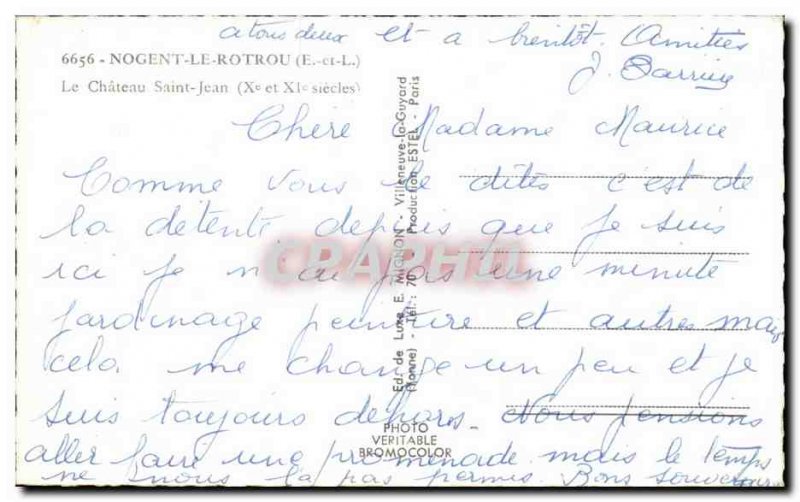 a tous deux et a bientôt. Amitiés
6656 - NOGENT-LE-ROTROU (E.-et-L.)
Le Château Saint-Jean (Xe et XIe siècles)
Chère Madame Maurice
Comme vous le dites c'est de
la detente depuis que je suis
ici je n'ai pas une minute
jardinage peinture et autres mais
cela me change un peu et je
suis toujours dehors Nous pensions
aller faire une promenade mais le temps
ne nous l'a pas permis Bons souvenirs
Ed. de Luxe E. MIGNON - Villeneuve-la-Guyard
(Yonne) - Tél.: 70 - Production ESTEL - Paris
PHOTO
VERITABLE
BROMOCOLOR
CPAPHIL